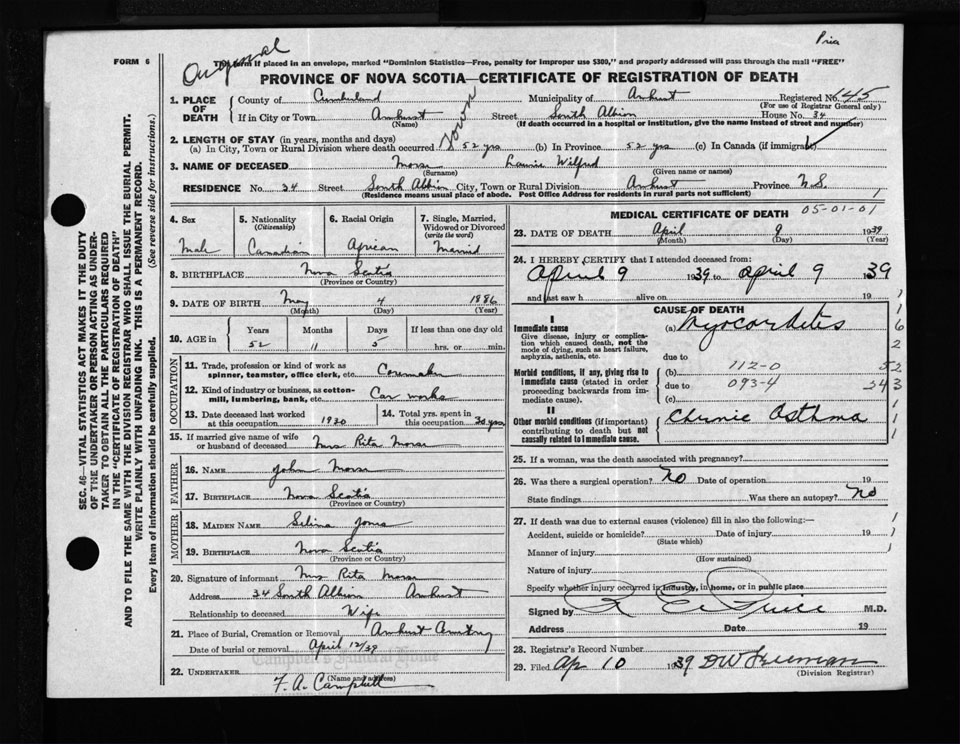 Pria
Original
FORM 6
This form if placed in an envelope, marked "Dominion Statistics—Free, penalty for improper use $300," and properly addressed will pass through the mail "FREE"
PROVINCE OF NOVA SCOTIA—CERTIFICATE OF REGISTRATION OF DEATH
1. PLACE OF DEATH County of Cumberland Municipality of Amherst Registered No. 145
(For use of Registrar General only)
If in City or Town Amherst Street South Albion House No. 34
(Name) (If death occurred in a hospital or institution, give the name instead of street and number)
Town
2. LENGTH OF STAY (in years, months and days)
(a) In City, Town or Rural Division where death occurred 52 yrs (b) In Province 52 yrs (c) In Canada (if immigrant)
3. NAME OF DECEASED Morse Laurie Wilfred
(Surname) (Given name or names)
RESIDENCE No. 34 Street South Albion City, Town or Rural Division Amherst Province N.S.
(Residence means usual place of abode. Post Office Address for residents in rural parts not sufficient)
1
SEC. 46—VITAL STATISTICS ACT MAKES IT THE DUTY
OF THE UNDERTAKER OR PERSON ACTING AS UNDER-
TAKER TO OBTAIN ALL THE PARTICULARS REQUIRED
IN THE "CERTIFICATE OF REGISTRATION OF DEATH"
AND TO FILE THE SAME WITH THE DIVISION REGISTRAR WHO SHALL ISSUE THE BURIAL PERMIT.
WRITE PLAINLY WITH UNFADING INK. THIS IS A PERMANENT RECORD.
Every item of information should be carefully supplied. (See reverse side for instructions.)
4. Sex
Male
5. Nationality
(Citizenship)
Canadian
6. Racial Origin
African
7. Single, Married, Widowed or Divorced
(write the word)
Married
8. BIRTHPLACE Nova Scotia
(Province or Country)
9. DATE OF BIRTH May 4 1886
(Month) (Day) (Year)
10. AGE in Years Months Days If less than one day old
52 11 5 hrs. or min.
OCCUPATION
11. Trade, profession or kind of work as
spinner, teamster, office clerk, etc. Coremaker
12. Kind of industry or business, as cotton-
mill, lumbering, bank, etc. Car works
13. Date deceased last worked
at this occupation 1930
14. Total yrs. spent in
this occupation 30 yrs
15. If married give name of wife
or husband of deceased Mrs Rita Morse
FATHER
16. NAME John Morse
17. BIRTHPLACE Nova Scotia
(Province or Country)
MOTHER
18. MAIDEN NAME Selina Jones
19. BIRTHPLACE Nova Scotia
(Province or Country)
20. Signature of informant Mrs Rita Morse
Address 34 South Albion Amherst
Relationship to deceased Wife
21. Place of Burial, Cremation or Removal Amherst
Date of burial or removal April 12/39
Campbell's Funeral Home
22. UNDERTAKER F. A. Campbell
(Name and address)
MEDICAL CERTIFICATE OF DEATH
05-01-01
23. DATE OF DEATH April 9 1939
(Month) (Day) (Year)
24. I HEREBY CERTIFY that I attended deceased from:
April 9 1939 to April 9 1939
and last saw h alive on 19
CAUSE OF DEATH
I
Immediate cause
Give disease, injury or complication which caused death, not the mode of dying, such as heart failure, asphyxia, asthenia, etc.
(a) Myocarditis
due to
Morbid conditions, if any, giving rise to immediate cause (stated in order proceeding backwards from immediate cause).
(b) 112-0
due to 093-4
(c)
II
Other morbid conditions (if important) contributing to death but not causally related to immediate cause.
Chronic Asthma
1
1
6
2
52
343
1
1
1
25. If a woman, was the death associated with pregnancy?
26. Was there a surgical operation? No Date of operation 19
State findings Was there an autopsy? No
27. If death was due to external causes (violence) fill in also the following:—
Accident, suicide or homicide? Date of injury 19
(State which)
Manner of injury
(How sustained)
Nature of injury
Specify whether injury occurred in industry, in home, or in public place
1
1
1
Signed by M.D.
Address Date 19
28. Registrar's Record Number
29. Filed Ap 10 1939 D W Freeman
(Division Registrar)